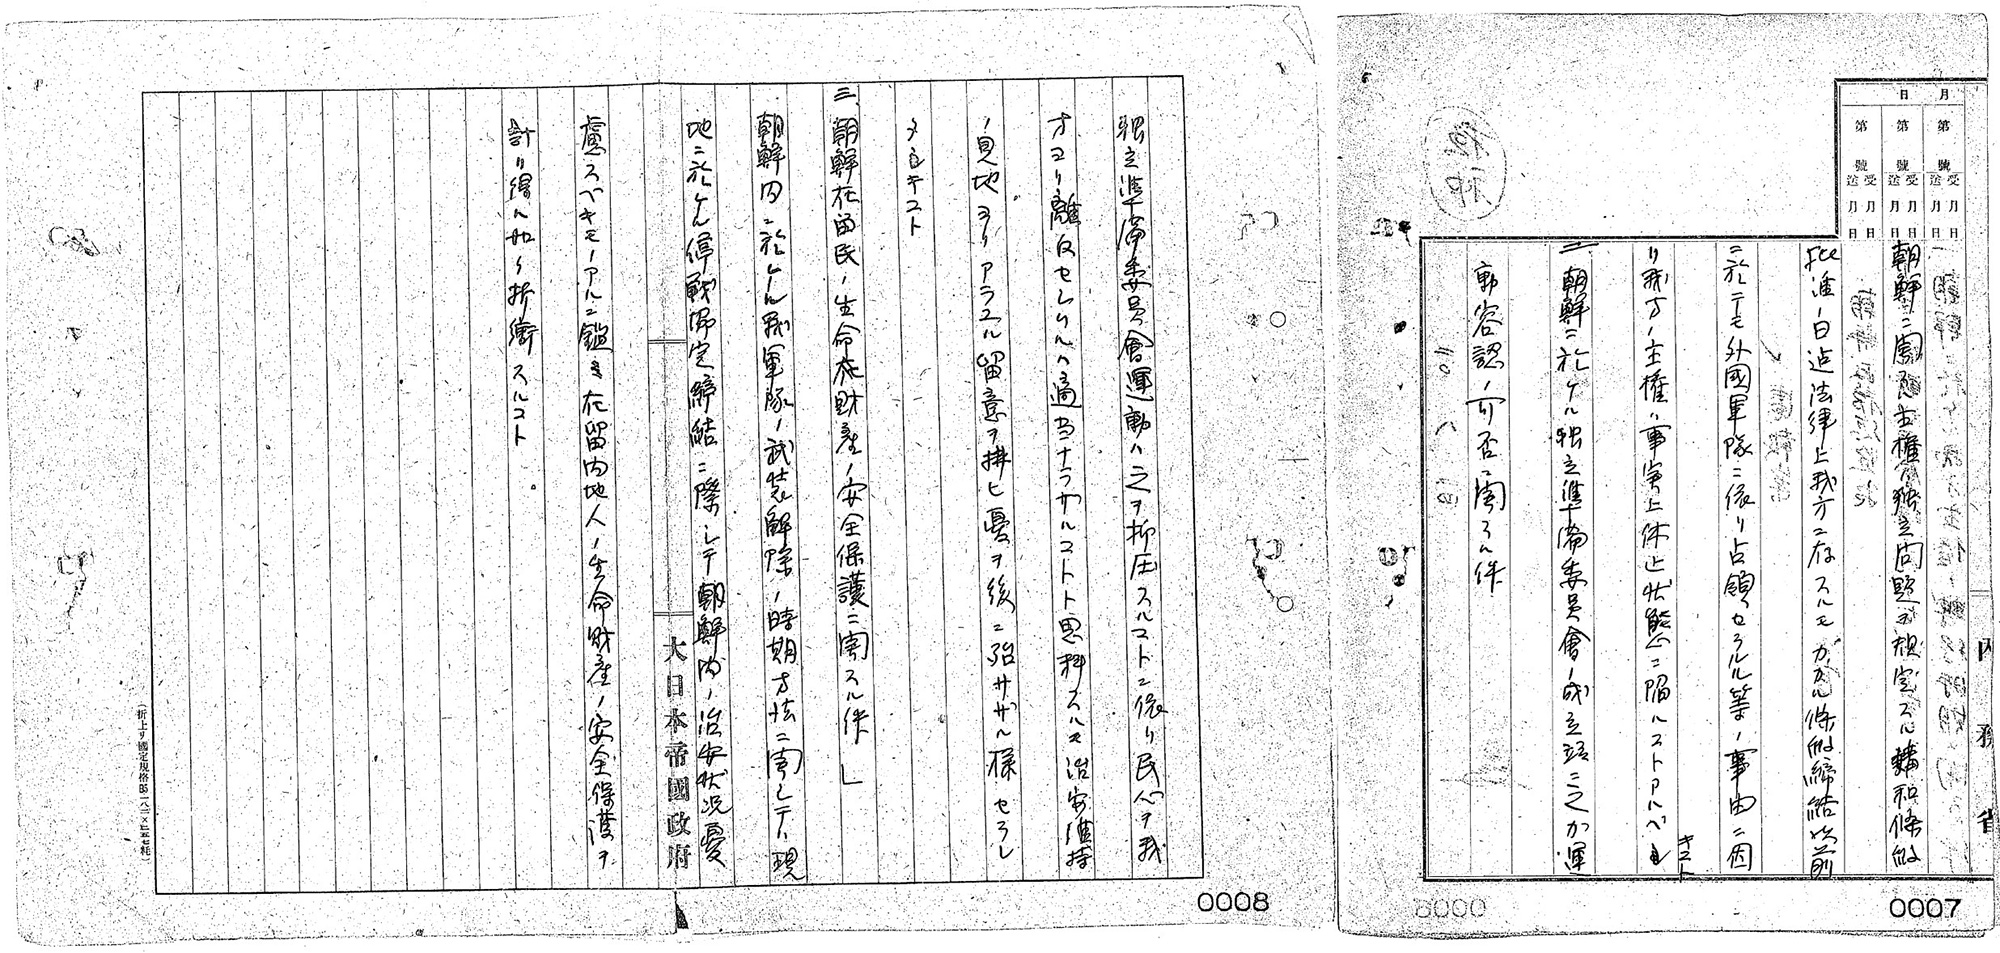 内務省
月
日
第 號 受 月 日 送 月 日
第 號 受 月 日 送 月 日
第 號 受 月 日 送 月 日
朝鮮ニ関スル主権ハ独立問題ヲ規定スル講和條約
批准ノ日迄法律上我方ニ存スルモカカル條約締結以前
ニ於テモ外國軍隊ニ依リ占領セラルル等ノ事由ニ因
リ我方ノ主権ハ事実上休止状態ニ陥ルコトアルベキコト
二、朝鮮ニ於ケル独立準備委員會ノ成立並ニ之カ運
動容認ノ可否ニ関スル件
0007
独立準備委員會運動ハ之ヲ抑圧スルコトニ依リ民心ヲ我
方ヨリ離反セシムルハ適当ナラザルコトト思料スルモ治安維持
ノ見地ヨリアラユル留意ヲ拂ヒ憂ヲ後ニ貽サザル様セラレ
タキコト
三、朝鮮在留民ノ生命在財産ノ安全保護ニ関スル件」
朝鮮内ニ於ケル我軍隊ノ武装解除ノ時期方法ニ関シテハ現
地ニ於ケル停戦協定締結ニ際シテ朝鮮内ノ治安状況憂
大日本帝國政府
慮スベキモノアルニ鑑ミ在留内地人ノ生命財産ノ安全保護ヲ
計リ得ル如ク折衝スルコト。
0008